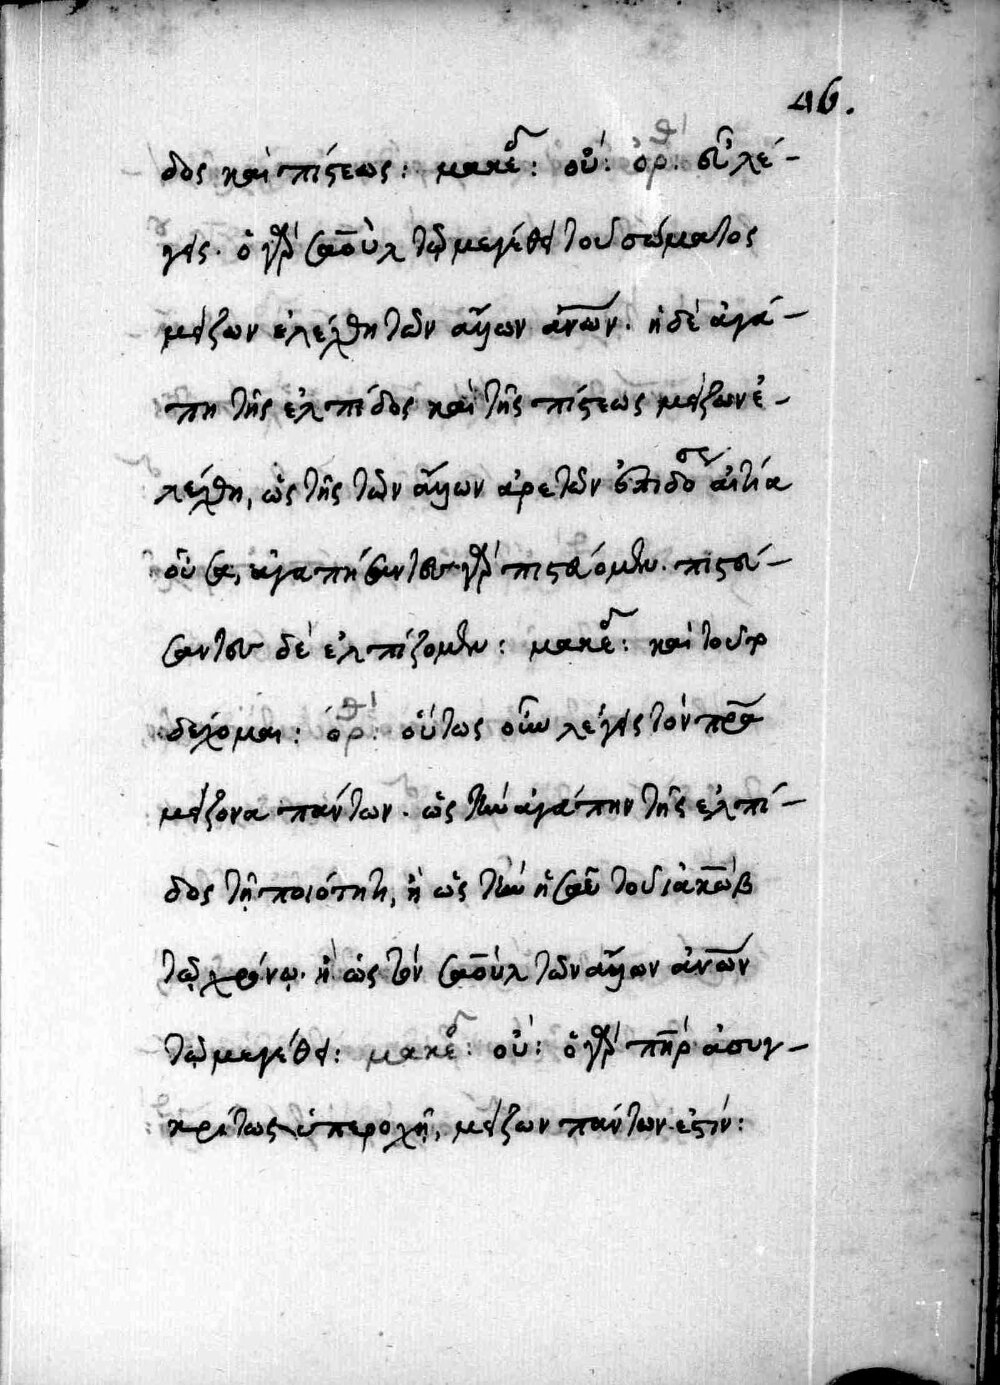 46.
δος καὶ πίστεως: μακεδ: οὔ: ὀρθ: σὺ λέ-
γεις. ὁ γὰρ σαοὺλ τῷ μεγέθει τοῦ σώματος
μείζων ἐλέχθη τῶν ἄλλων ἀνων. ἡ δὲ ἀγά-
πη τῆς ἐλπίδος καὶ τῆς πίστεως μείζων ἐ-
λέχθη, ὡς τῆς τῶν ἄλλων ἀρετῶν ἐπιδόσεως αἰτία
οὖσα, ἀγαπήσαντες γὰρ πιστεύομεν. πιστεύ-
σαντες δὲ ἐλπίζομεν: μακεδ: καὶ τοῦτο
δέχομαι: ὀρθ: οὕτως οὖν λέγεις τὸν πρα
μείζονα πάντων. ὡς τὴν ἀγάπην τῆς ἐλπί-
δος τῇ ποιότητι, ἢ ὡς τὸν ἡσαῦ τοῦ ἰακὼβ
τῷ χρόνῳ. ἢ ὡς τὸν σαοὺλ τῶν ἄλλων ἀνων
τῷ μεγέθει: μακεδ: οὔ: ὁ γὰρ πηρ ἀσυγ-
κρίτως ὑπεροχῇ, μείζων πάντων ἐστίν: